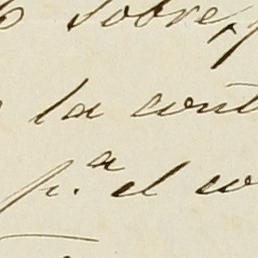 sobre,
la cont
p.ª el co